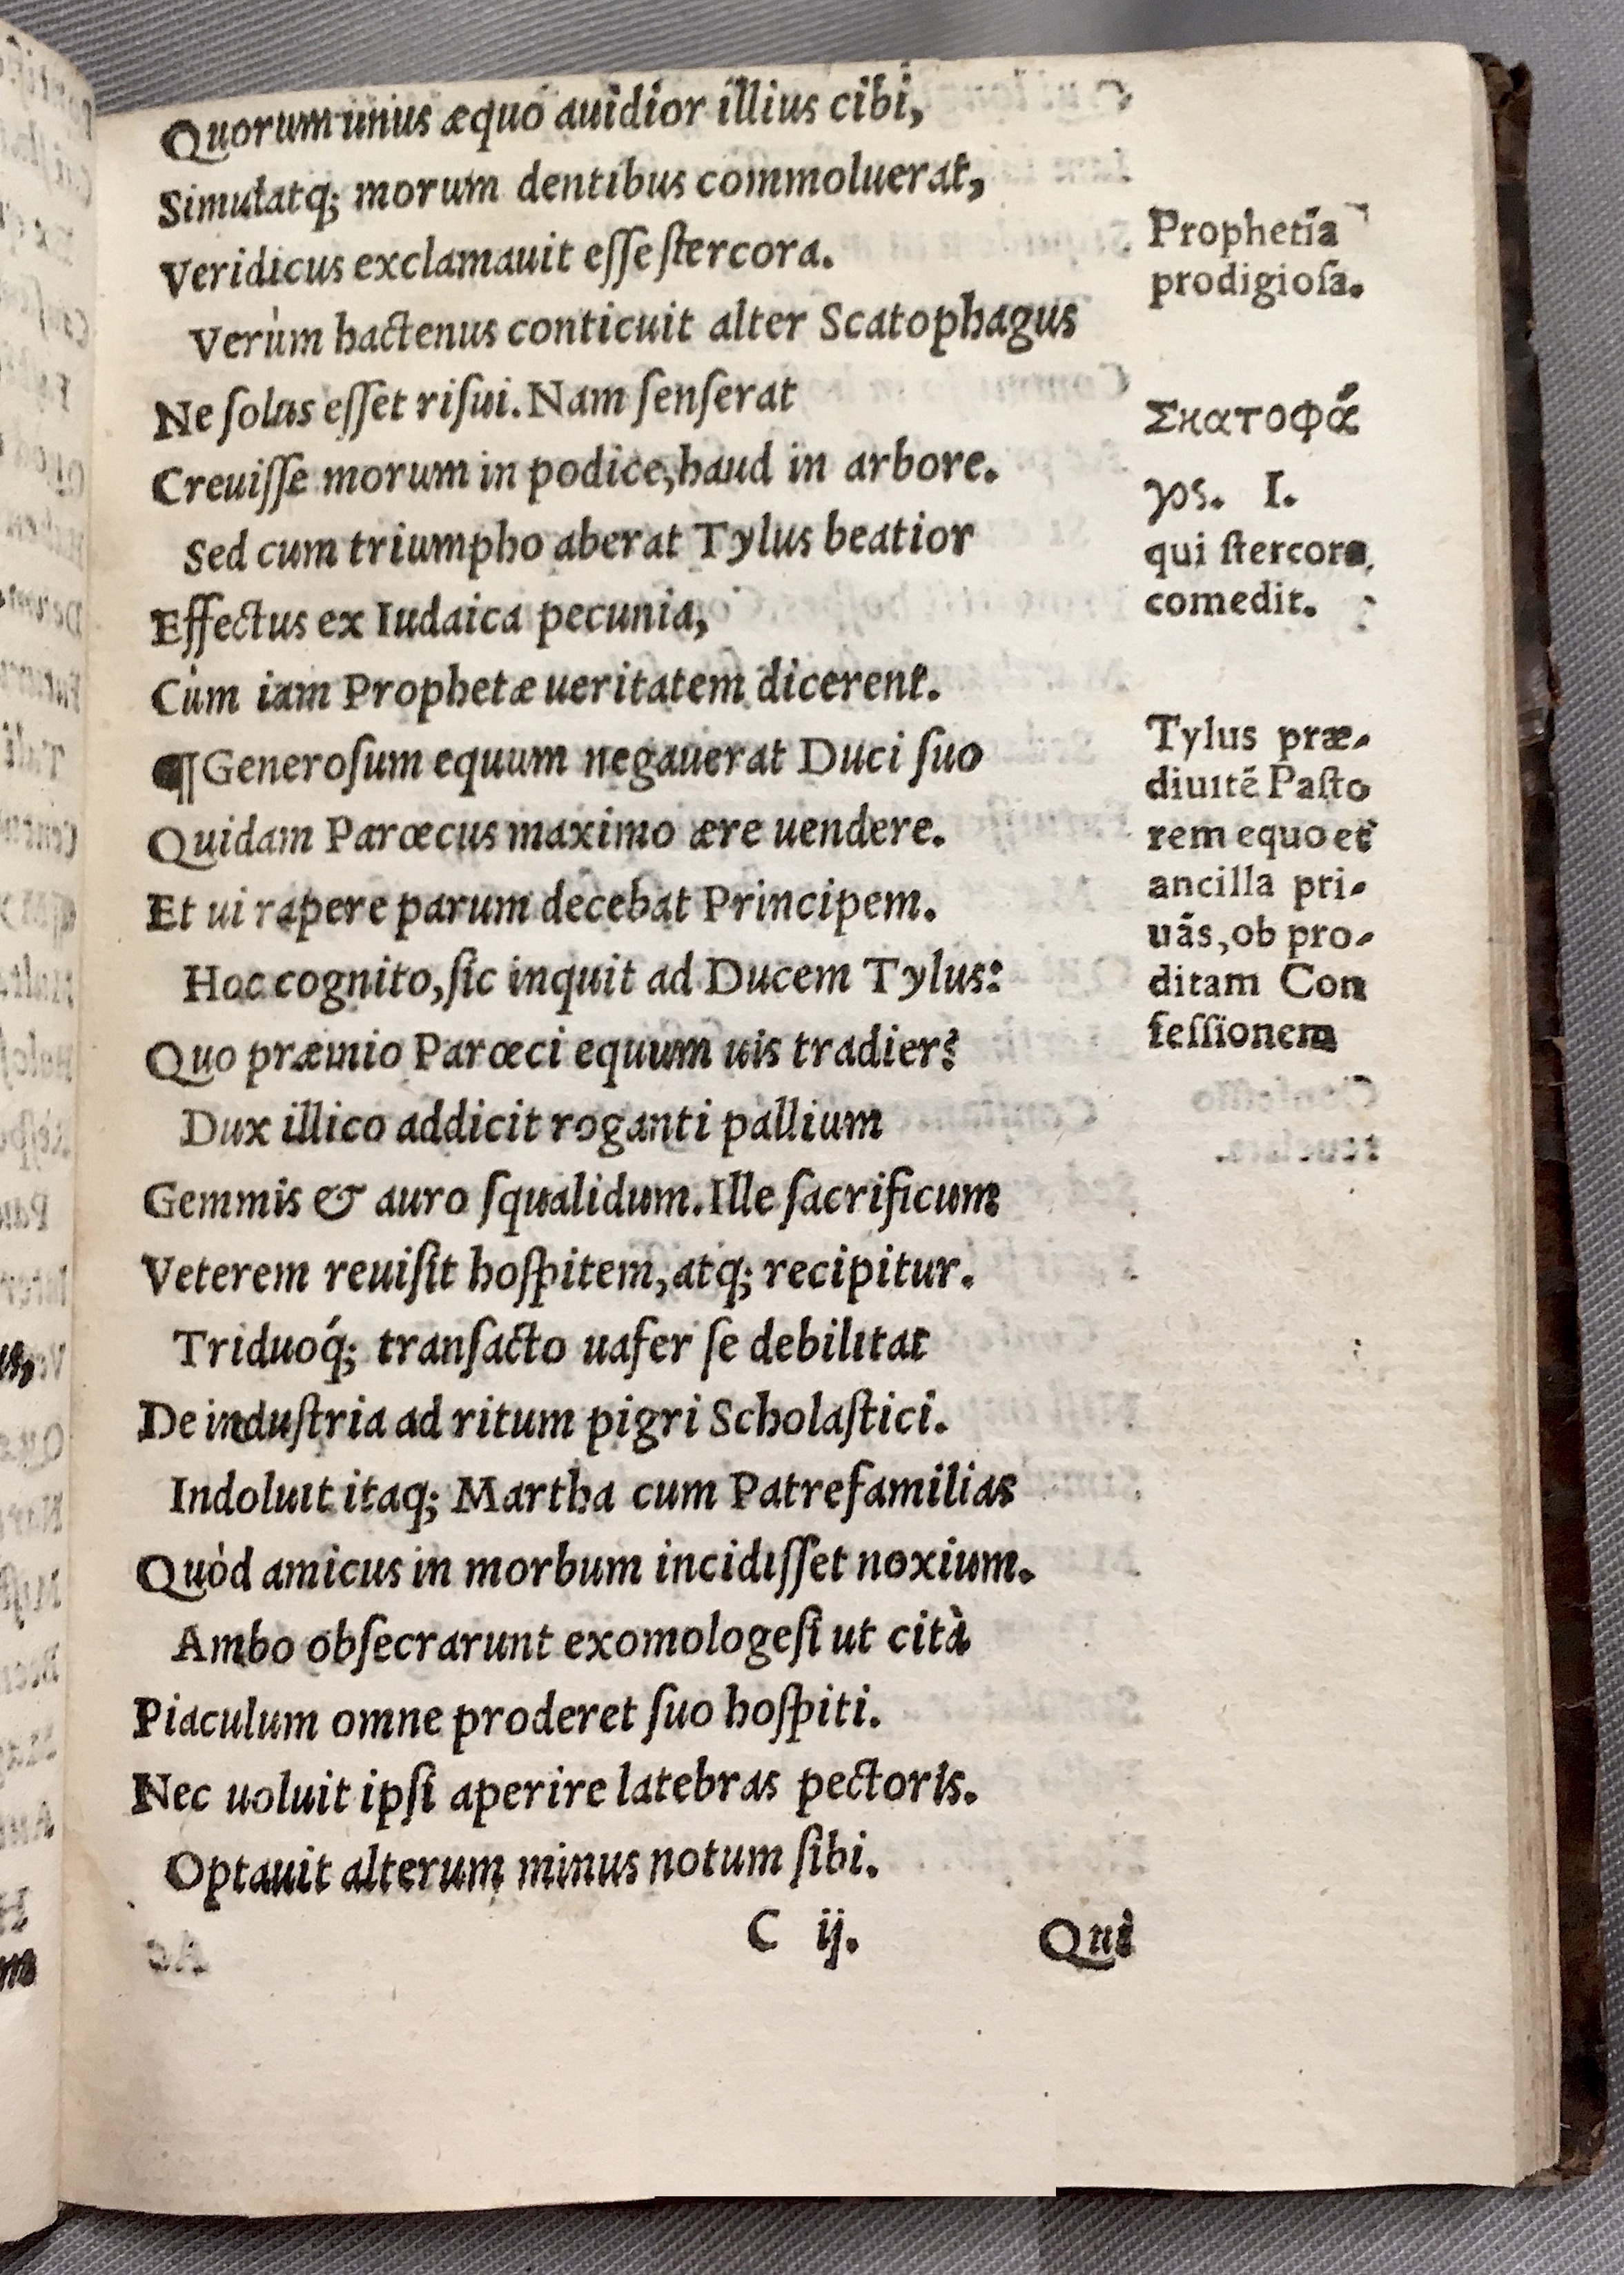 Quorum unius æquo auidior illius cibi,
Simulatq; morum dentibus commoluerat,
Veridicus exclamauit eſſe ſtercora.
Verùm hactenus conticuit alter Scatophagus
Ne ſolus eſſet riſui. Nam ſenſerat
Creuiſſe morum in podice, haud in arbore.
Sed cum triumpho aberat Tylus beatior
Effectus ex Iudaica pecunia,
Cùm iam Prophetæ ueritatem dicerent.
¶ Generoſum equum negauerat Duci ſuo
Quidam Parœcus maximo ære uendere.
Et ui rapere parum decebat Principem.
Hoc cognito, ſic inquit ad Ducem Tylus:
Quo præmio Parœci equum uis tradier?
Dux illico addicit roganti pallium
Gemmis & auro ſqualidum. Ille ſacrificum
Veterem reuiſit hoſpitem, atq; recipitur.
Triduoq́; tranſacto uafer ſe debilitat
De induſtria ad ritum pigri Scholaſtici.
Indoluit itaq; Martha cum Patrefamilias
Quòd amicus in morbum incidiſſet noxium.
Ambo obſecrarunt exomologeſi ut cità
Piaculum omne proderet ſuo hoſpiti.
Nec uoluit ipſi aperire latebras pectoris.
Optauit alterum minus notum ſibi.
C ij.
Qui
Prophetia
prodigioſa.
Σκατοφά
γος. I.
qui ſtercora
comedit.
Tylus præ-
diuitē Paſto
rem equo et
ancilla pri-
uās, ob pro-
ditam Con
feſſionem